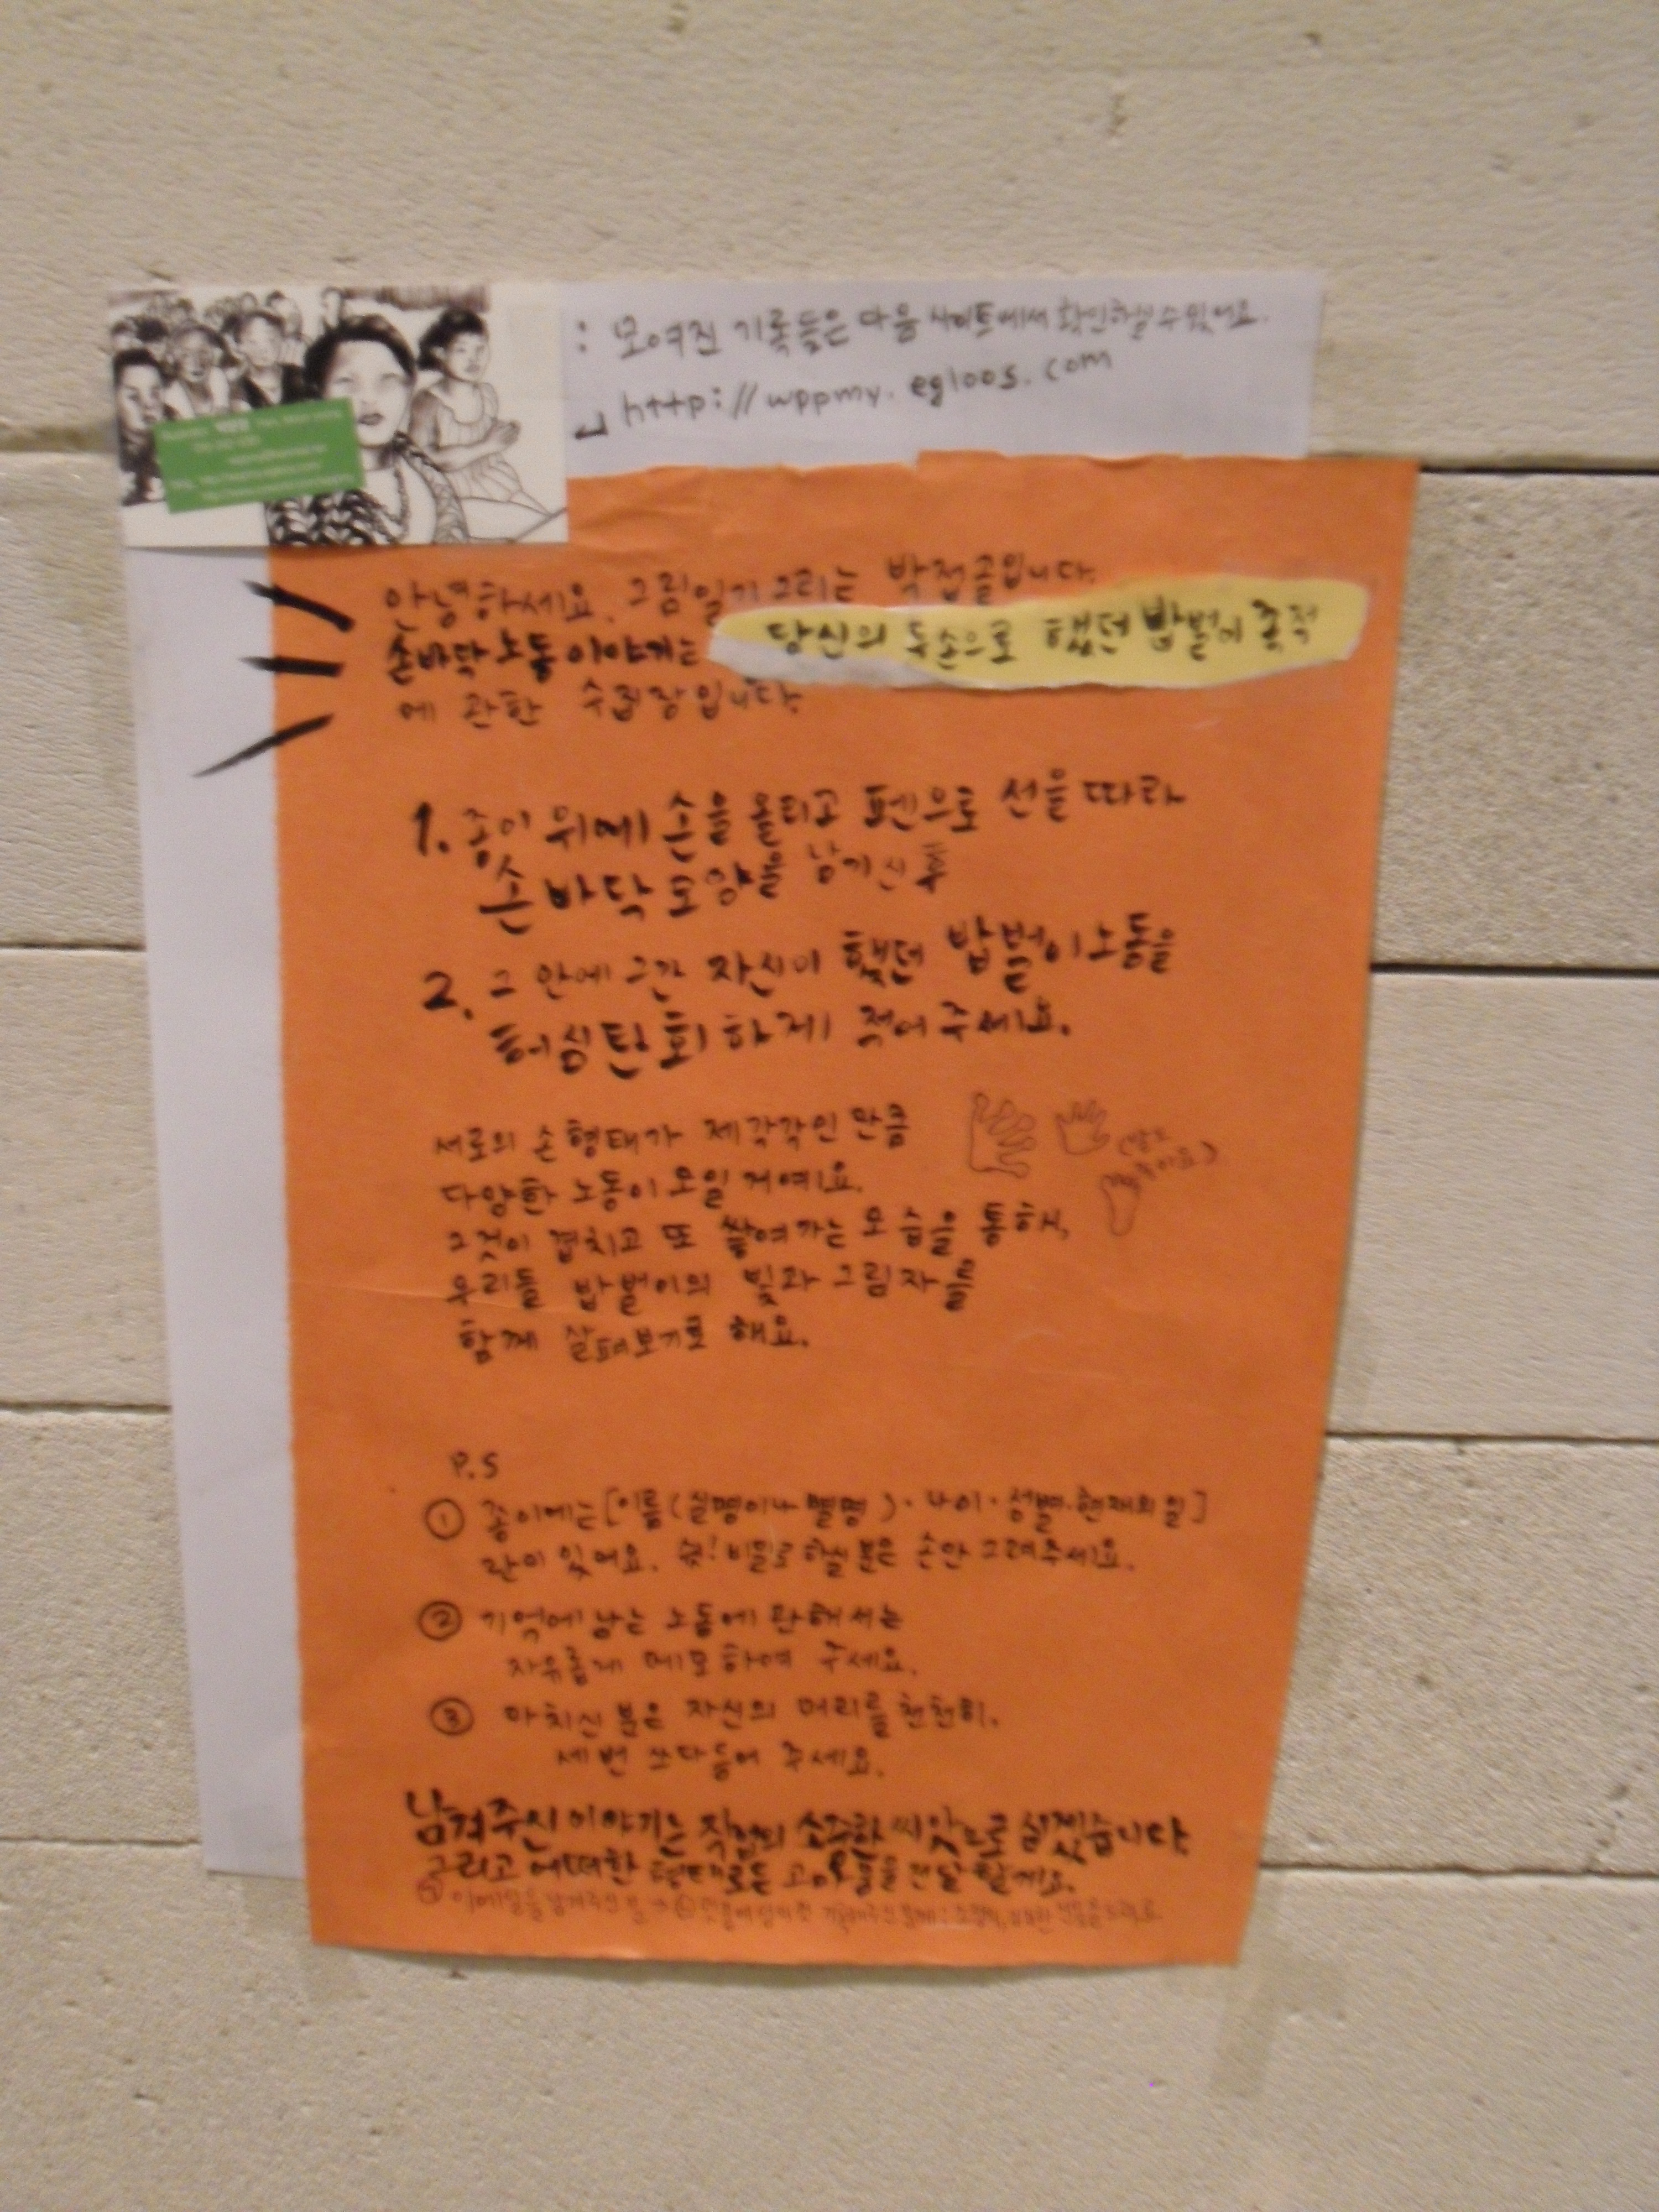 : 모여진 기록들은 다음 사이트에서 확인하실 수 있어요.
http://wppmy.egloos.com
안녕하세요. 그림일기 그리는 박전골입니다.
손바닥 노동 이야기는 당신의 두손으로 했던 밥벌이 흔적
에 관한 수집장입니다.
1. 종이 위에 손을 올리고 펜으로 선을 따라
손바닥 모양을 남기신 후
2. 그 안에 그간 자신이 했던 밥벌이 노동을
허심탄회하게 적어주세요.
서로의 손 형태가 제각각인 만큼
다양한 노동이 모일 거예요.
그것이 겹치고 또 쌓여가는 모습을 통하여,
우리들 밥벌이의 빛과 그림자들을
함께 살펴보기로 해요.
P.S
① 종이에는 [이름(실명이나 별명)·나이·성별·현재의 일]
란이 있어요. 쉿! 비밀로 할 분은 손만 그려주세요.
② 기억에 남는 노동에 관해서는
자유롭게 메모하여 주세요.
③ 마치신 분은 자신의 머리를 천천히.
세 번 쓰다듬어 주세요.
남겨주신 이야기는 작업의 소중한 씨앗으로 심겠습니다.
그리고 어떠한 형태로든 고마움을 전달할게요.